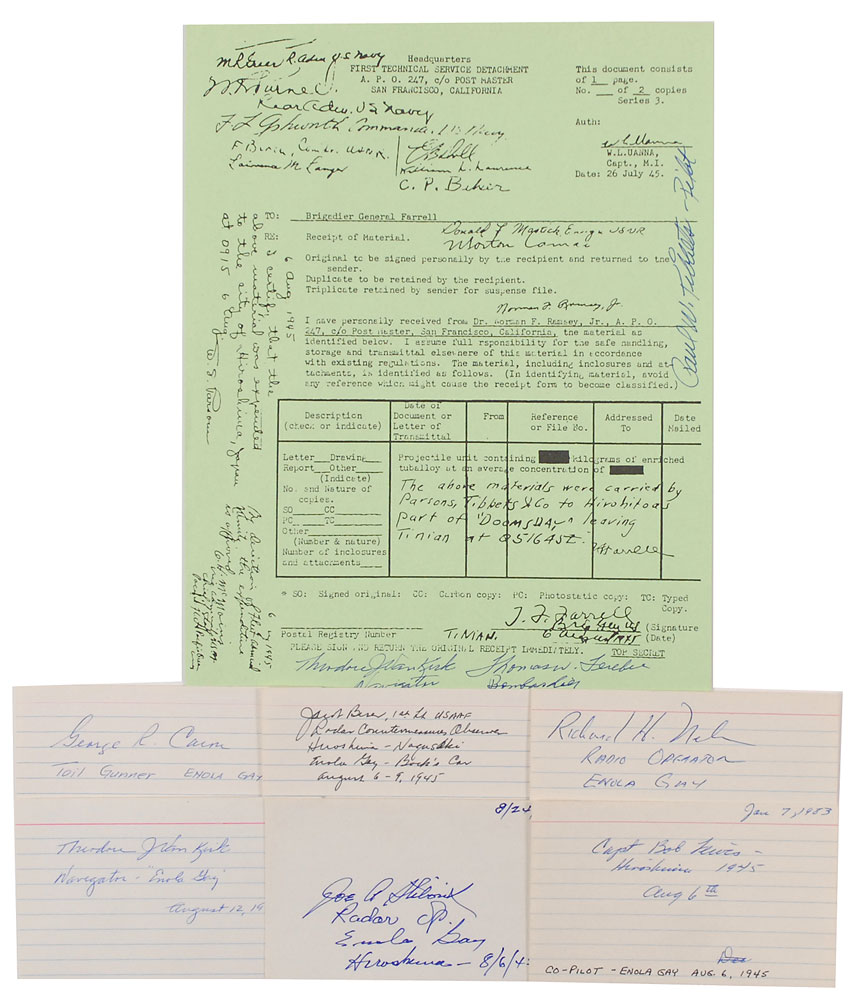 M R Purnell R. Adm U.S. Navy
Rear Adm. US Navy
F L Ashworth Commander, US Navy
F Birch, Comdr. USNR.
Laurence M Langer
William L. Laurence
C. P. Baker
Headquarters
FIRST TECHNICAL SERVICE DETACHMENT
A. P. O. 247, c/o POST MASTER
SAN FRANCISCO, CALIFORNIA
This document consists
of 1 page.
No. __ of 2 copies
Series 3.
Auth:
W.L.UANNA,
Capt., M.I.
Date: 26 July 45.
Paul W. Tibbets Pilot
TO: Brigadier General Farrell
RE: Receipt of Material.
Donald F Mastick Ensign USNR
Morton Camac
Original to be signed personally by the recipient and returned to the
sender.
Duplicate to be retained by the recipient.
Triplicate retained by sender for suspense file.
Norman F Ramsey, Jr.
I have personally received from Dr. Norman F. Ramsey, Jr., A. P. O.
247, c/o Post Master, San Francisco, California, the material as
identified below. I assume full rsponsibility for the safe handling,
storage and transmittal elsewhere of this material in accordance
with existing regulations. The material, including inclosures and at-
tachments, is identified as follows. (In identifying material, avoid
any reference which might cause the receipt form to become classified.)
6 Aug 1945
I certify that the
above material was expended
to the city of Hiroshima, Japan
at 0915 6 Aug.
W S Parsons
Description
(check or indicate)
Date of
Document or
Letter of
Transmittal
From
Reference
or File No.
Addressed
To
Date
Mailed
Letter___Drawing___
Report___Other____
(Indicate)
No. and Nature of
copies.
SO____CC____
PC____TC____
Other________
(Number & nature)
Number of inclosures
and attachments____
Projectile unit containing kilograms of enriched
tuballoy at an average concentration of
The above materials were carried by
Parsons, Tibbets & Co to Hirohitoas
part of "Doomsday" leaving
Tinian at 051645Z.
TFFarrell
* SO: Signed original: CC: Carbon copy: PC: Photostatic copy: TC: Typed
Copy.
T. F. Farrell
Brig Gen US
(Signature
Postal Registry Number
TINIAN.
6 August 1945 (Date)
PLEASE SIGN AND RETURN THE ORIGINAL RECEIPT IMMEDIATELY.
TOP SECRET
Theodore J Van Kirk
Navigator
Thomas W. Ferebee
Bombardier
George R. Caron
Tail Gunner Enola Gay
Jacob Beser, 1st Lt USAAF
Radar Countermeasures Observer
Hiroshima - Nagasaki
Enola Gay - Bock's Car
August 6-9, 1945
Richard H. Nelson
Radio Operator
Enola Gay
Theodore J Van Kirk
Navigator - "Enola Gay"
August 12, 19
8/24/
Joe A Stiborik
Radar Op.
Enola Gay
Hiroshima - 8/6/4
Jan 7, 1983
Capt Bob Lewis -
Hiroshima 1945
Aug 6th
CO-PILOT - ENOLA GAY AUG. 6, 1945